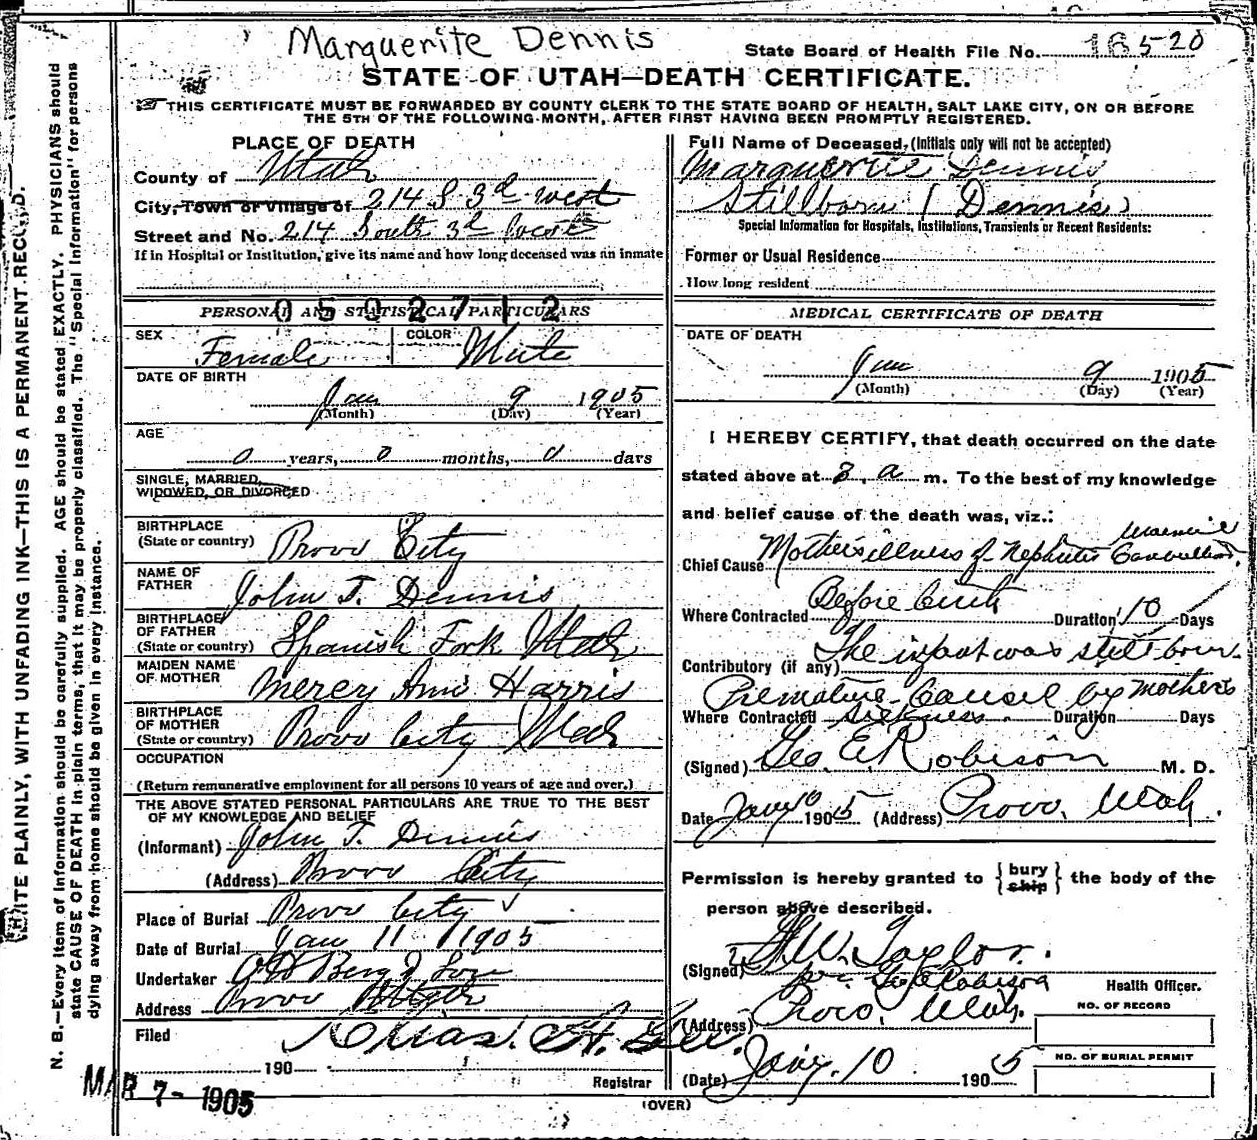 Marguerite Dennis
State Board of Health File No. 16520
STATE OF UTAH—DEATH CERTIFICATE.
THIS CERTIFICATE MUST BE FORWARDED BY COUNTY CLERK TO THE STATE BOARD OF HEALTH, SALT LAKE CITY, ON OR BEFORE
THE 5TH OF THE FOLLOWING MONTH, AFTER FIRST HAVING BEEN PROMPTLY REGISTERED.
N. B.—Every item of information should be carefully supplied. AGE should be stated EXACTLY. PHYSICIANS should
state CAUSE OF DEATH in plain terms, that it may be properly classified. The "Special Information" for persons
dying away from home should be given in every instance.
WRITE PLAINLY, WITH UNFADING INK—THIS IS A PERMANENT RECORD.
PLACE OF DEATH
County of Utah
City, Town or Village of 214 S 3d West
Street and No. 214 South 3d West
If in Hospital or Institution, give its name and how long deceased was an inmate
0 5 0 2 7 1 2
PERSONAL AND STATISTICAL PARTICULARS
SEX Female
COLOR White
DATE OF BIRTH
Jan 9 1905
(Month) (Day) (Year)
AGE
0 years, 0 months, 0 days
SINGLE, MARRIED,
WIDOWED, OR DIVORCED
BIRTHPLACE
(State or country) Provo City
NAME OF
FATHER John T. Dennis
BIRTHPLACE
OF FATHER
(State or country) Spanish Fork Utah
MAIDEN NAME
OF MOTHER Mercy Ann Harris
BIRTHPLACE
OF MOTHER
(State or country) Provo City Utah
OCCUPATION
(Return remunerative employment for all persons 10 years of age and over.)
THE ABOVE STATED PERSONAL PARTICULARS ARE TRUE TO THE BEST
OF MY KNOWLEDGE AND BELIEF
(Informant) John T. Dennis
(Address) Provo City
Place of Burial Provo City
Date of Burial Jan 11 1905
Undertaker Berg & Son
Address Provo
Filed
190
Registrar
MAR 7- 1905
Full Name of Deceased, (Initials only will not be accepted)
Marguerite Dennis
Stillborn (Dennis)
Special Information for Hospitals, Institutions, Transients or Recent Residents:
Former or Usual Residence
How long resident
MEDICAL CERTIFICATE OF DEATH
DATE OF DEATH
Jan 9 1905
(Month) (Day) (Year)
I HEREBY CERTIFY, that death occurred on the date
stated above at 3 a m. To the best of my knowledge
and belief cause of the death was, viz.:
Chief Cause Mother's illness of Nephritis
Where Contracted Before birth Duration 10 Days
Contributory (if any) The infant was still born
Premature Caused by mother's
Where Contracted sickness Duration Days
(Signed) Geo. E. Robison M. D.
Date Jany 10 1905 (Address) Provo, Utah.
Permission is hereby granted to { bury ship } the body of the
person above described.
(Signed) Taylor.
per G E Robison
Health Officer.
(Address) Provo, Utah.
(Date) Jany. 10 1905
NO. OF RECORD
NO. OF BURIAL PERMIT
(OVER)